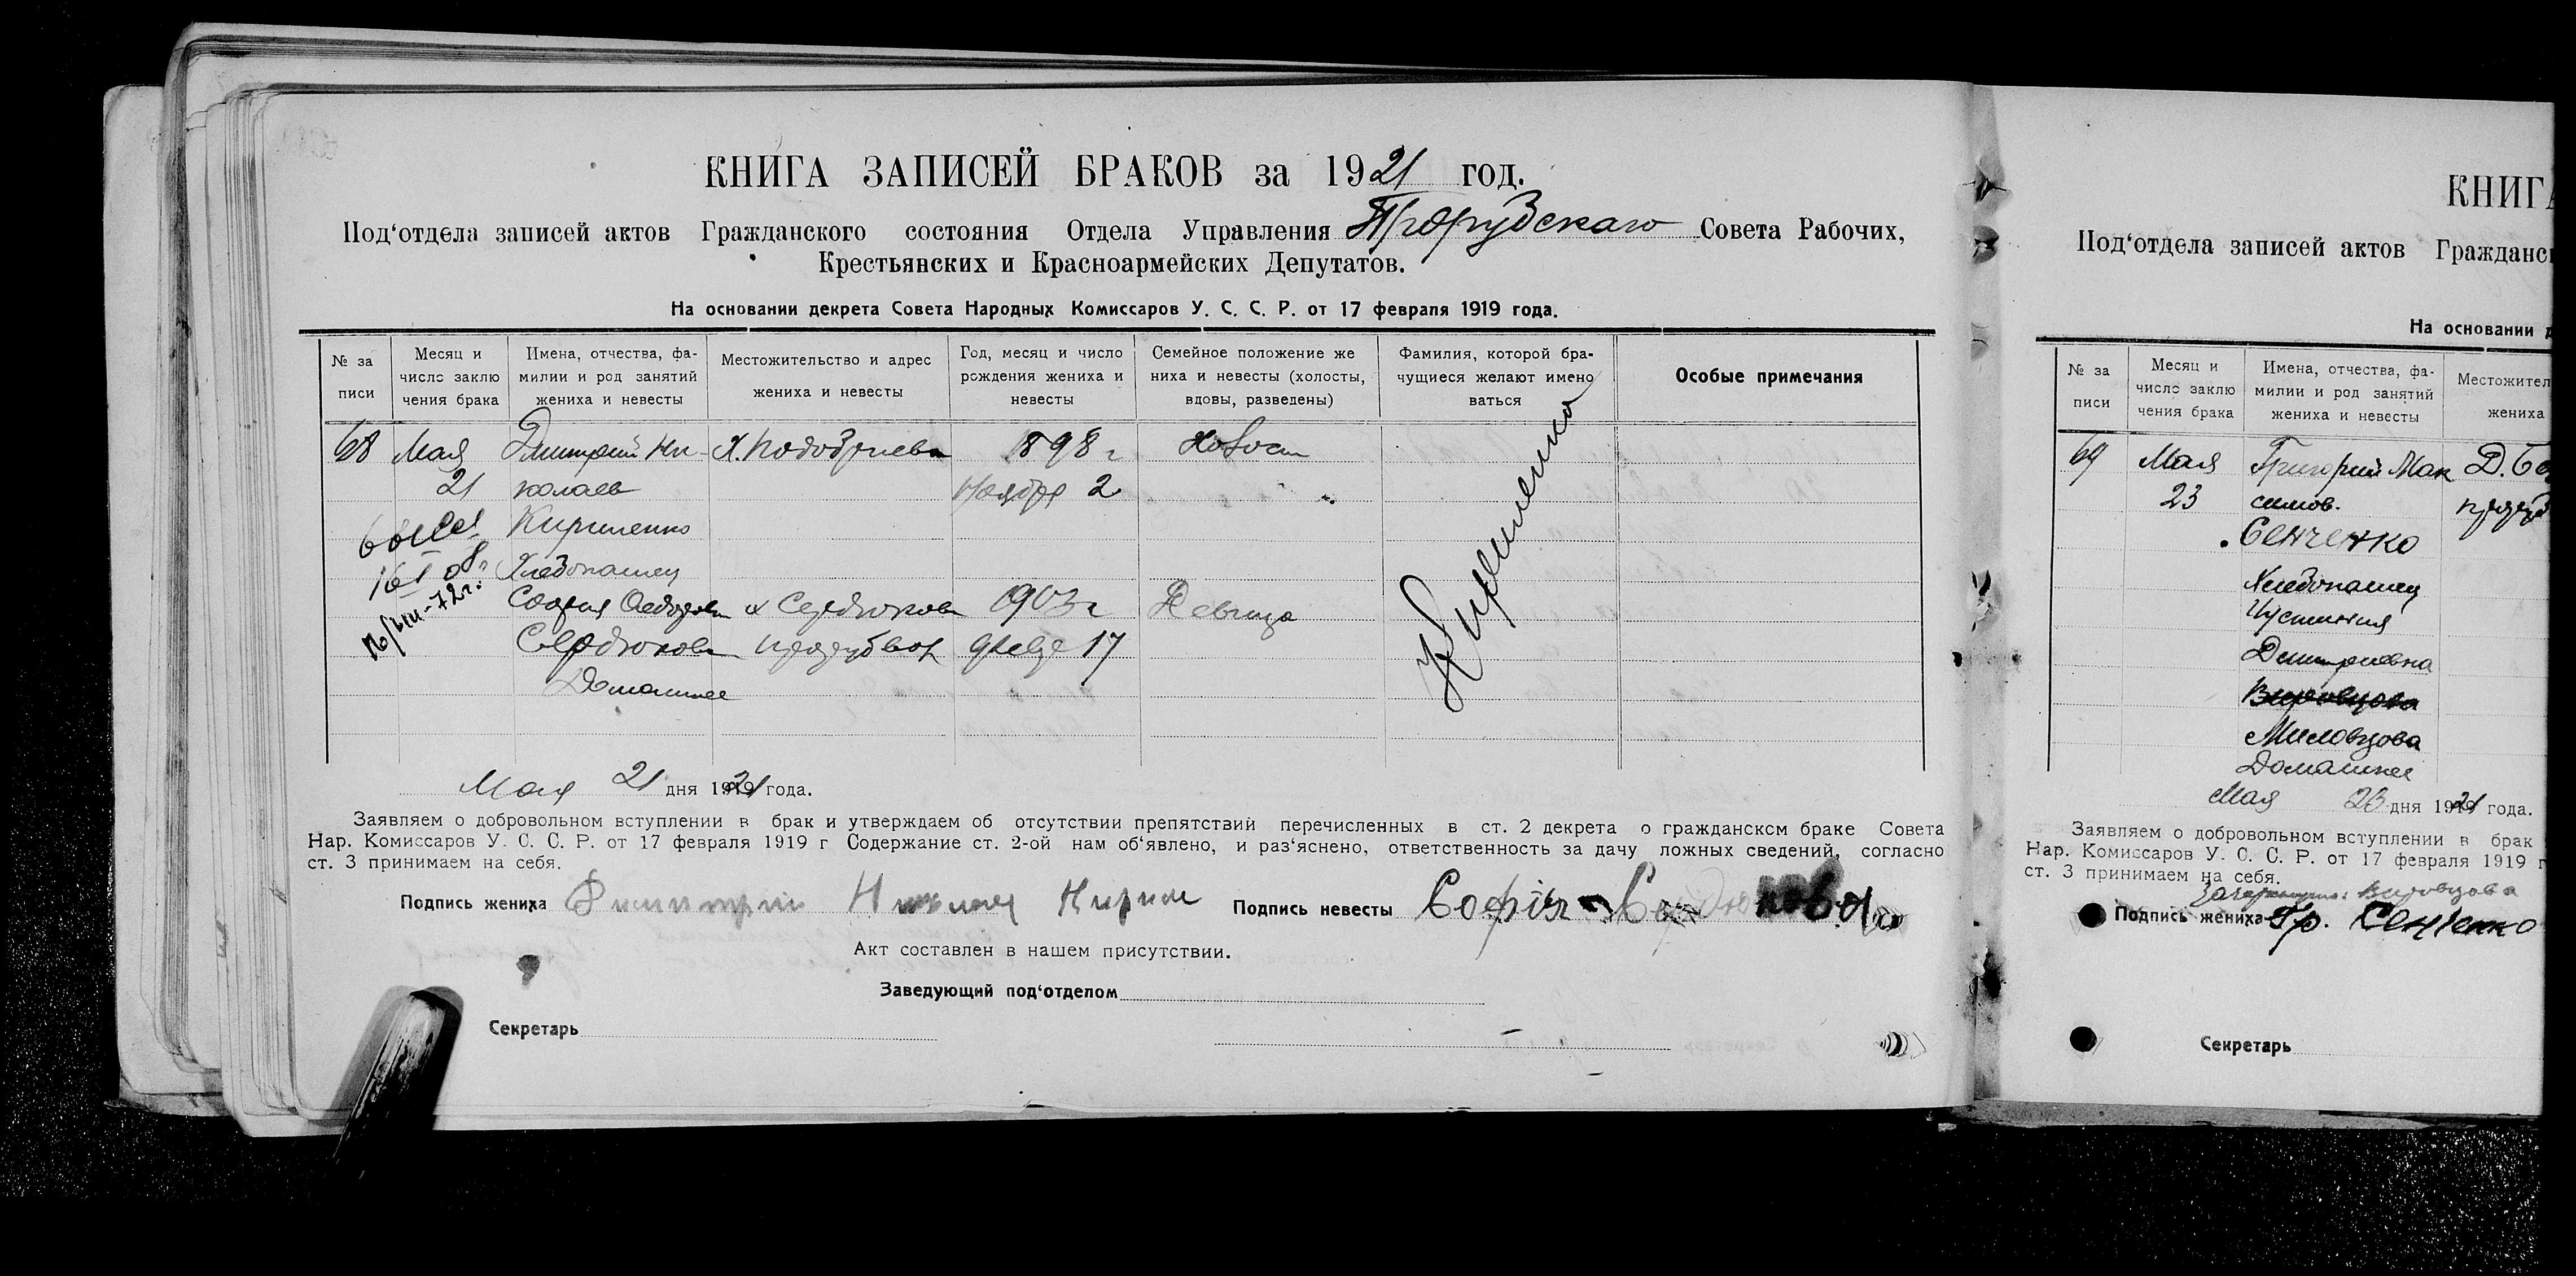 КНИГА ЗАПИСЕЙ БРАКОВ за 1921 год.
Под‘отдела записей актов Гражданского состояния Отдела Управления Прорубскаго Совета Рабочих,
Крестьянских и Красноармейских Депутатов.
На основании декрета Совета Народных Комиссаров У. С. С. Р. от 17 февраля 1919 года.
№ за
писи
Месяц и
число заклю
чения брака
Имена, отчества, фа-
милии и род занятий
жениха и невесты
Местожительство и адрес
жениха и невесты
Год, месяц и число
рождения жениха и
невесты
Семейное положение же
ниха и невесты (холосты,
вдовы, разведены)
Фамилия, которой бра-
чущиеся желают имено
ваться
Особые примечания
68 Мая Дмитрий Ни- Х. 1898 г Холост
21 колаев Ноября 2
Кириленко
Хлебопашец
София Федоров х Сердюков 1903 г Девица
Сердюкова 17
Домашнее
Кириленко
Мая 21 дня 1921 года.
Заявляем о добровольном вступлении в брак и утверждаем об отсутствии препятствий перечисленных в ст. 2 декрета о гражданском браке Совета
Нар. Комиссаров У. С. С. Р. от 17 февраля 1919 г Содержание ст. 2-ой нам об‘явлено, и раз‘яснено, ответственность за дачу ложных сведений, согласно
ст. 3 принимаем на себя.
Подпись жениха Димитрий Николай Кирил Подпись невесты Софія Сердюкова
Акт составлен в нашем присутствии.
Заведующий под‘отделом
Секретарь
КНИГА
Под‘отдела записей актов Гражданс
На основании д
№ за
писи
Месяц и
число заклю
чения брака
Имена, отчества, фа-
милии и род занятий
жениха и невесты
Местожител
жениха
69 Мая Григорий Мак Д.
23 симов.
Сенченко
Хлебопашец
Иустиния
Дмитриевна
Вировцова
Миловцова
Домашнее
Мая 23 дня 1921 года.
Заявляем о добровольном вступлении в брак
Нар. Комиссаров У. С. С. Р. от 17 февраля 1919 г
ст. 3 принимаем на себя.
Зачеркнуто: Вировцова
Подпись жениха Гр. Сенченко
Секретарь